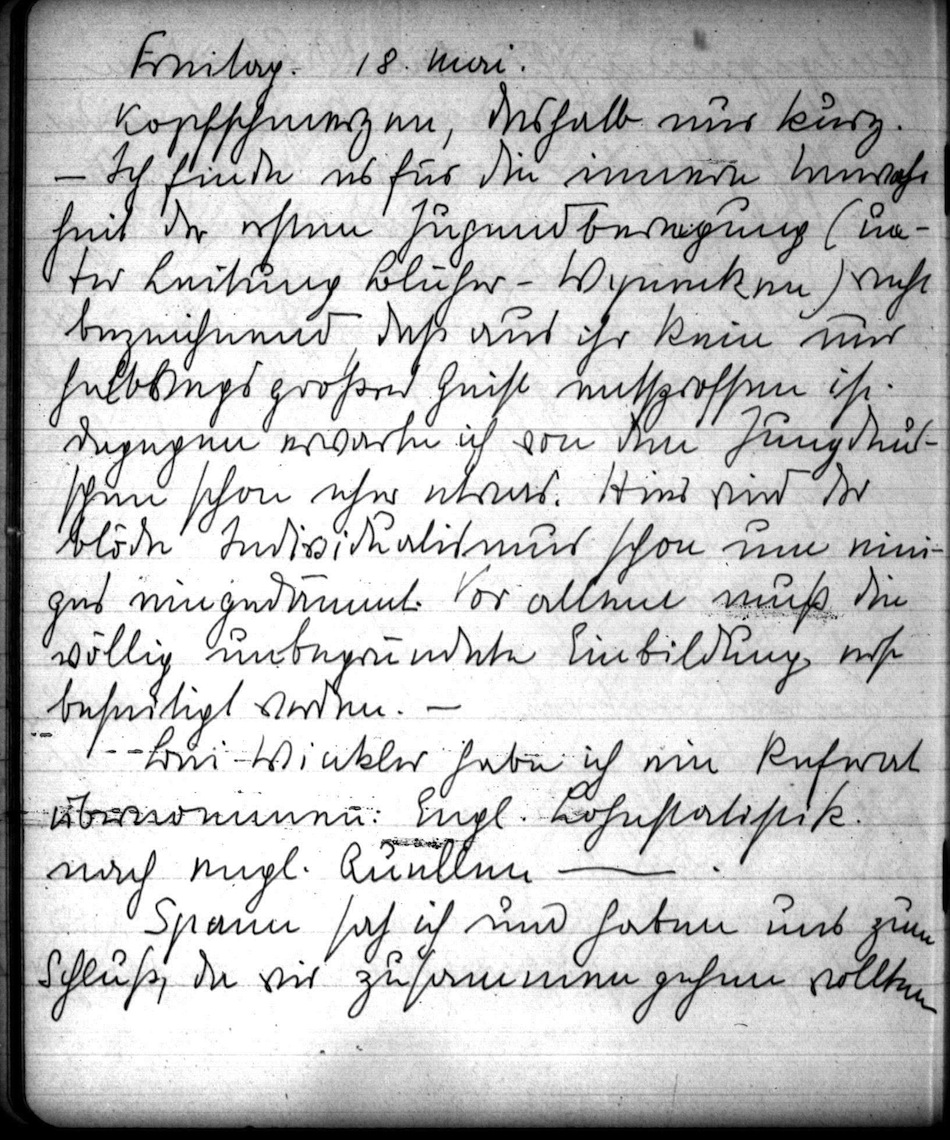 Freitag. 18. Mai.
Kopfschmerzen, deshalb nur kurz.
– Ich finde es für die innere Unwahr
heit der ersten Jugendbewegung (un-
ter Leitung Blüher – Wyneken) recht
bezeichnend, daß aus ihr kein nur
halbwegs großer Geist entsprossen ist.
dagegen erwarte ich von den Jungdeut-
schen schon eher etwas. Hier wird der
blöde Individualismus schon um eini-
ges eingedämmt. Vor allem muß die
völlig unbegründete Einbildung erst
beseitigt werden. –
Winkler habe ich ein Referat
übernommen: Engl. Lohnstatistik.
nach engl. Quellen — .
Spann sah ich und haben uns zum
Schluß, da wir zusammen gehen wollten